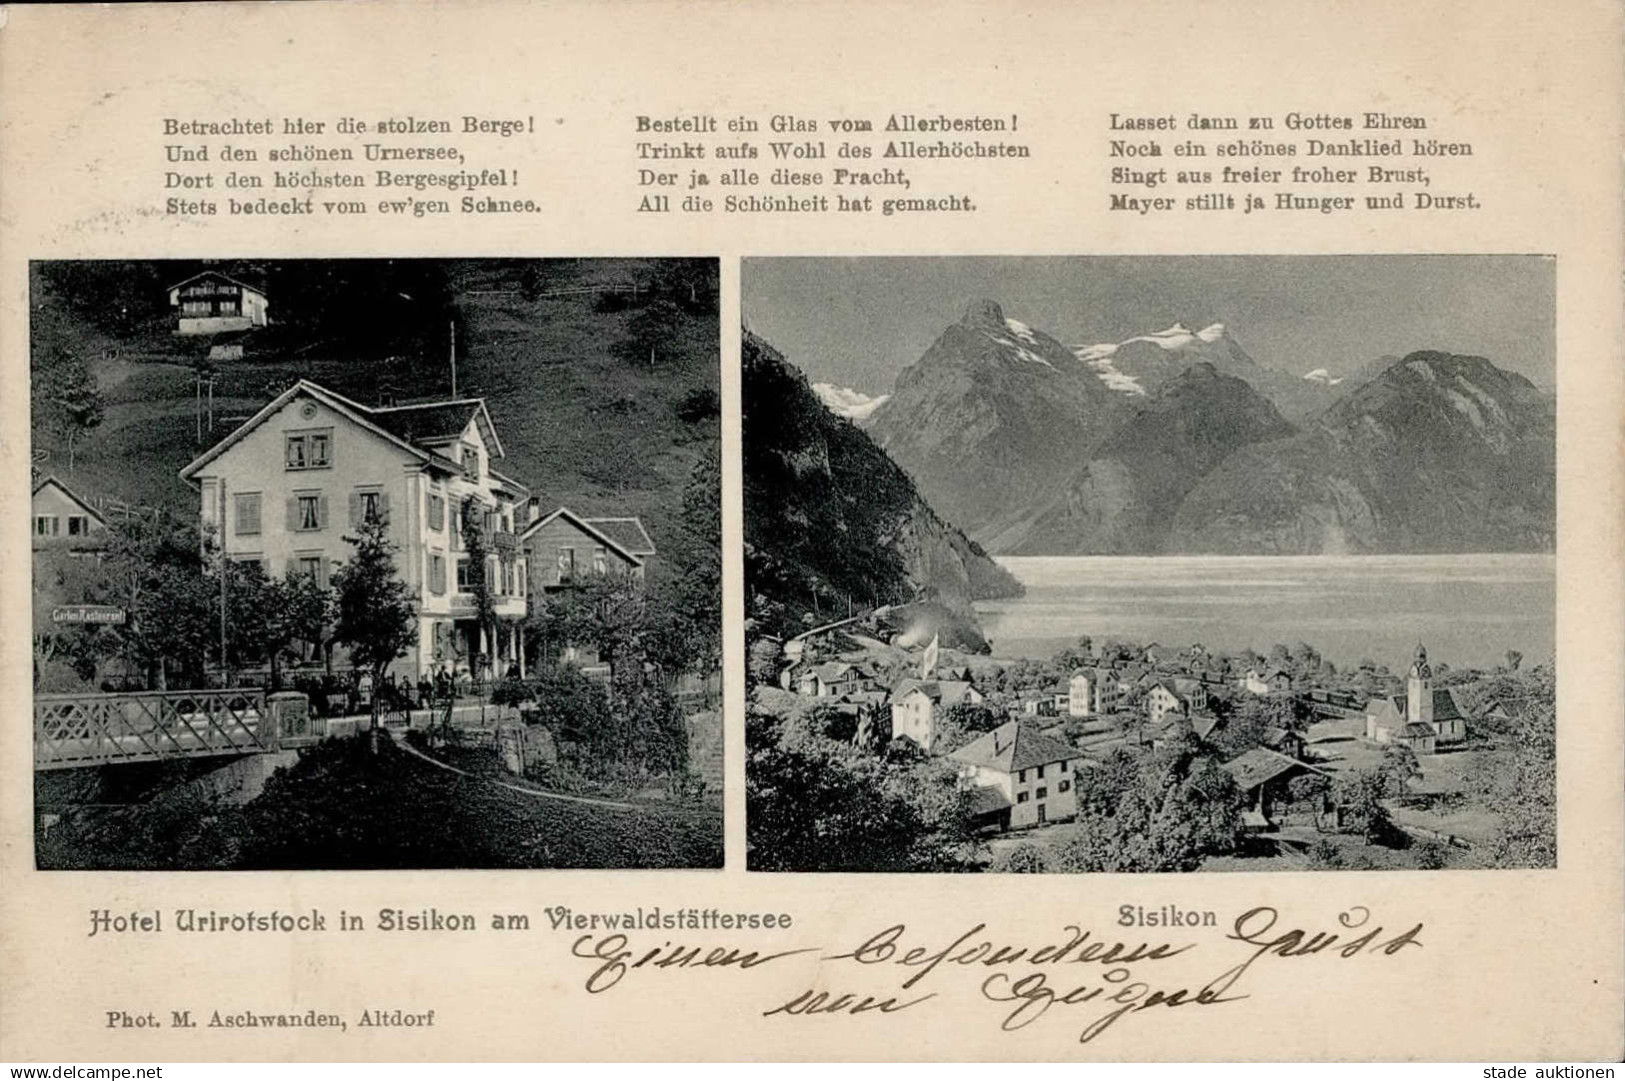 Betrachtet hier die stolzen Berge!
Und den schönen Urnersee,
Dort den höchsten Bergesgipfel!
Stets bedeckt vom ew'gen Schnee.
Bestellt ein Glas vom Allerbesten!
Trinkt aufs Wohl des Allerhöchsten
Der ja alle diese Pracht,
All die Schönheit hat gemacht.
Lasset dann zu Gottes Ehren
Noch ein schönes Danklied hören
Singt aus freier froher Brust,
Mayer stillt ja Hunger und Durst.
Garten Restaurant
Hotel Urirotstock in Sisikon am Vierwaldstättersee
Sisikon
Einen besondern Gruss
von Eugen
Phot. M. Aschwanden, Altdorf
stade auktionen